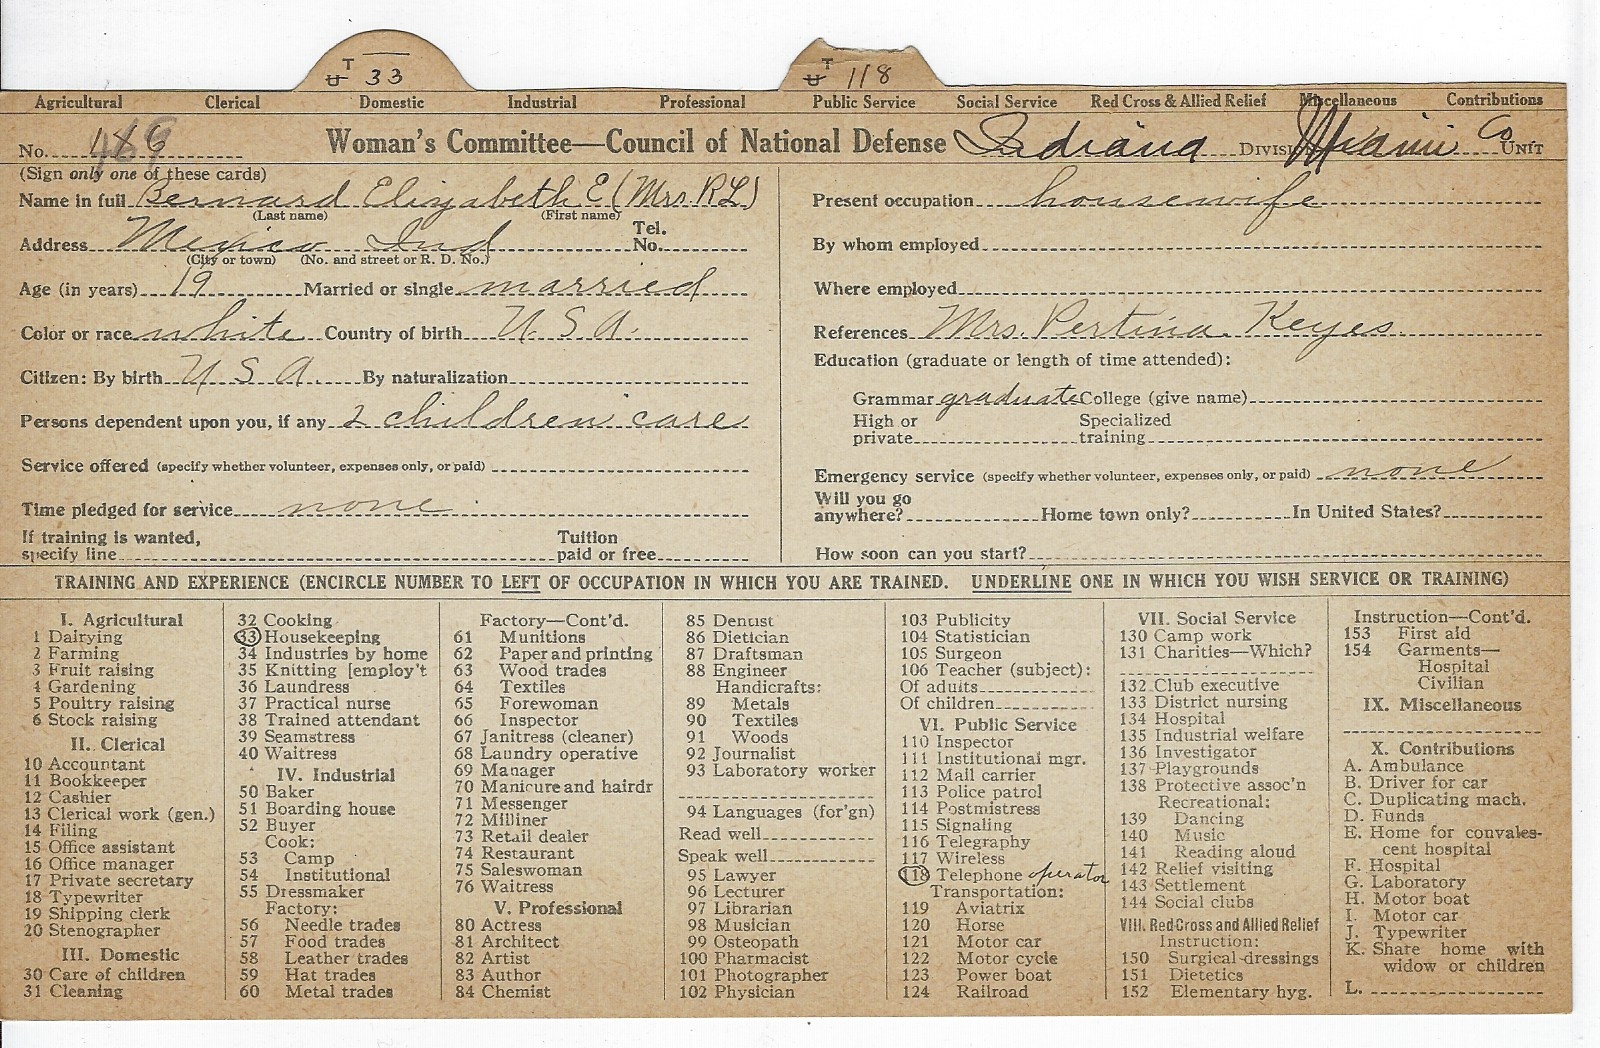 T U 33 T U 118
Agricultural Clerical Domestic Industrial Professional Public Service Social Service Red Cross & Allied Relief Miscellaneous Contributions
No. 186 Woman's Committee—Council of National Defense Indiana DIVISION Miami Co UNIT
(Sign only one of these cards)
Name in full Bernard Elizabeth E (Mrs. R L)
(Last name) (First name)
Address Mexico Ind Tel. No.
(City or town) (No. and street or R. D. No.)
Age (in years) 19 Married or single married
Color or race white Country of birth U. S. A.
Citizen: By birth U S A. By naturalization
Persons dependent upon you, if any 2 children care
Service offered (specify whether volunteer, expenses only, or paid)
Time pledged for service none
If training is wanted, specify line Tuition paid or free
Present occupation housewife
By whom employed
Where employed
References Mrs. Pertina Keyes.
Education (graduate or length of time attended):
Grammar graduate College (give name)
High or private Specialized training
Emergency service (specify whether volunteer, expenses only, or paid) none
Will you go anywhere? Home town only? In United States?
How soon can you start?
TRAINING AND EXPERIENCE (ENCIRCLE NUMBER TO LEFT OF OCCUPATION IN WHICH YOU ARE TRAINED. UNDERLINE ONE IN WHICH YOU WISH SERVICE OR TRAINING)
I. Agricultural
1 Dairying
2 Farming
3 Fruit raising
4 Gardening
5 Poultry raising
6 Stock raising
II. Clerical
10 Accountant
11 Bookkeeper
12 Cashier
13 Clerical work (gen.)
14 Filing
15 Office assistant
16 Office manager
17 Private secretary
18 Typewriter
19 Shipping clerk
20 Stenographer
III. Domestic
30 Care of children
31 Cleaning
32 Cooking
33 Housekeeping
34 Industries by home
35 Knitting [employ't
36 Laundress
37 Practical nurse
38 Trained attendant
39 Seamstress
40 Waitress
IV. Industrial
50 Baker
51 Boarding house
52 Buyer
Cook:
53 Camp
54 Institutional
55 Dressmaker
Factory:
56 Needle trades
57 Food trades
58 Leather trades
59 Hat trades
60 Metal trades
Factory—Cont'd.
61 Munitions
62 Paper and printing
63 Wood trades
64 Textiles
65 Forewoman
66 Inspector
67 Janitress (cleaner)
68 Laundry operative
69 Manager
70 Manicure and hairdr
71 Messenger
72 Milliner
73 Retail dealer
74 Restaurant
75 Saleswoman
76 Waitress
V. Professional
80 Actress
81 Architect
82 Artist
83 Author
84 Chemist
85 Dentist
86 Dietician
87 Draftsman
88 Engineer
Handicrafts:
89 Metals
90 Textiles
91 Woods
92 Journalist
93 Laboratory worker
94 Languages (for'gn)
Read well
Speak well
95 Lawyer
96 Lecturer
97 Librarian
98 Musician
99 Osteopath
100 Pharmacist
101 Photographer
102 Physician
103 Publicity
104 Statistician
105 Surgeon
106 Teacher (subject):
Of adults
Of children
VI. Public Service
110 Inspector
111 Institutional mgr.
112 Mail carrier
113 Police patrol
114 Postmistress
115 Signaling
116 Telegraphy
117 Wireless
118 Telephone operator
Transportation:
119 Aviatrix
120 Horse
121 Motor car
122 Motor cycle
123 Power boat
124 Railroad
VII. Social Service
130 Camp work
131 Charities—Which?
132 Club executive
133 District nursing
134 Hospital
135 Industrial welfare
136 Investigator
137 Playgrounds
138 Protective assoc'n
Recreational:
139 Dancing
140 Music
141 Reading aloud
142 Relief visiting
143 Settlement
144 Social clubs
VIII. Red Cross and Allied Relief
Instruction:
150 Surgical dressings
151 Dietetics
152 Elementary hyg.
Instruction—Cont'd.
153 First aid
154 Garments—
Hospital
Civilian
IX. Miscellaneous
X. Contributions
A. Ambulance
B. Driver for car
C. Duplicating mach.
D. Funds
E. Home for convales-
cent hospital
F. Hospital
G. Laboratory
H. Motor boat
I. Motor car
J. Typewriter
K. Share home with
widow or children
L.